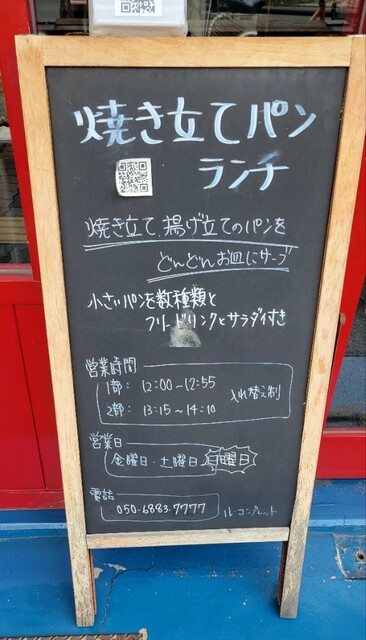 焼き立てパン
ランチ
焼き立て、揚げ立てのパンを
どんどんお皿にサーブ
小さいパンを数種類と
フリードリンクとサラダ付き
営業時間
1部: 12:00~12:55
2部: 13:15~14:10
入れ替え制
営業日
金曜日・土曜日、日曜日
電話
050-6883-7777
ル・コンプレット